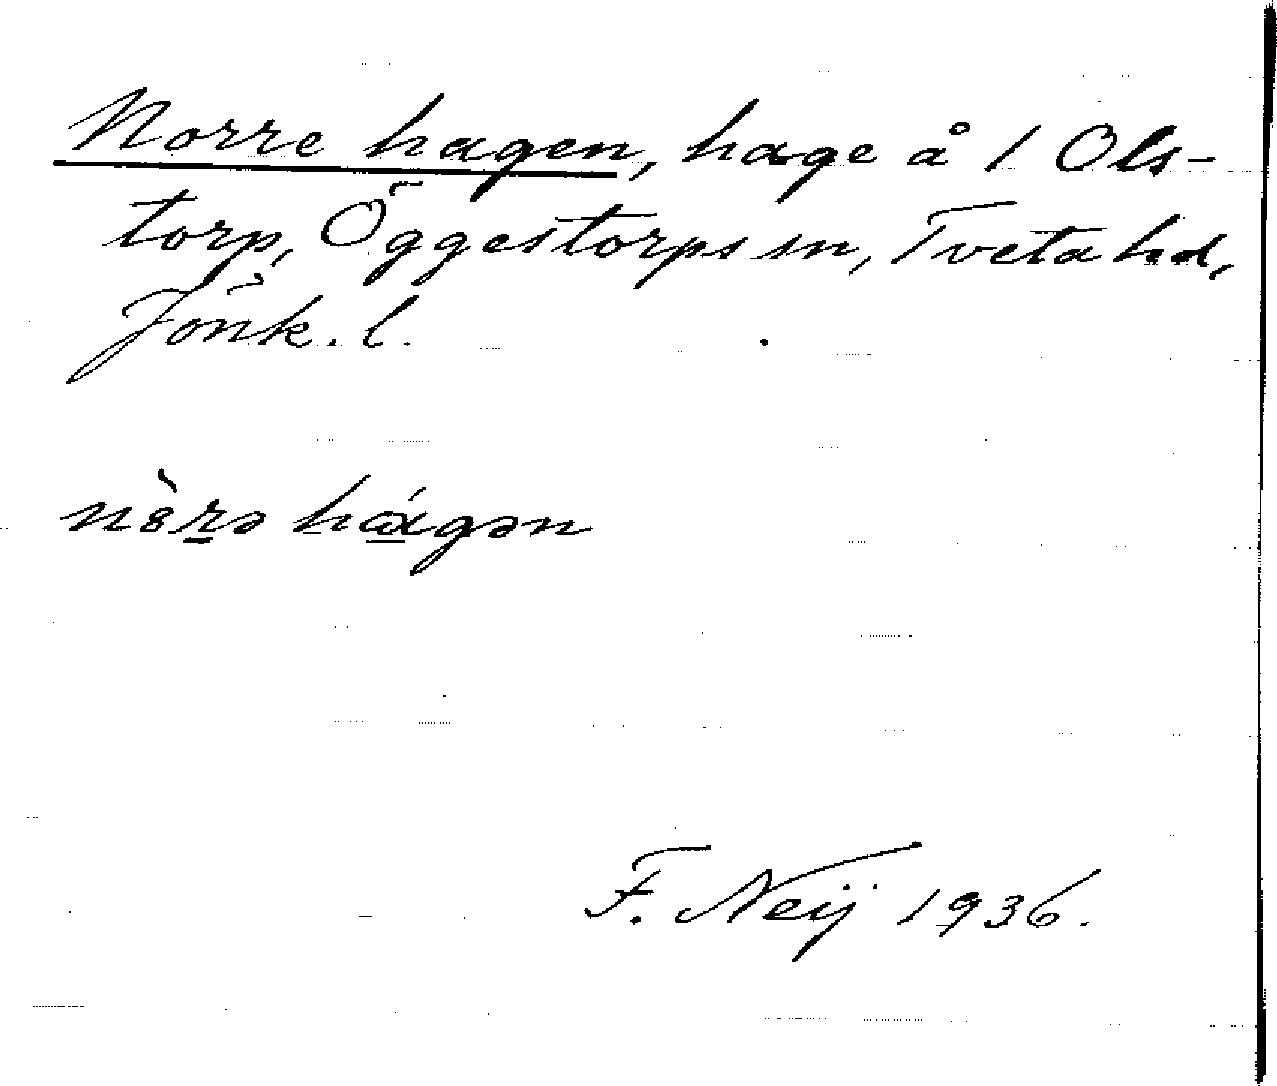 Norre hagen, hage å 1 Ols-
torp, Öggestorps sn, Tveta hd,
Jönk. l.
hagən
F. Neij 1936.